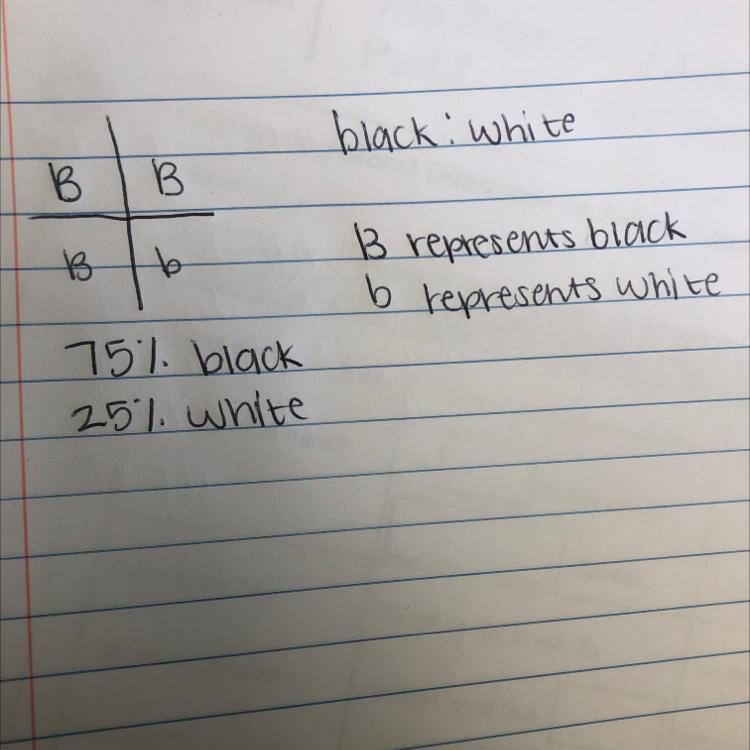 black : white
B B
B b
B represents black
b represents white
75% black
25% white